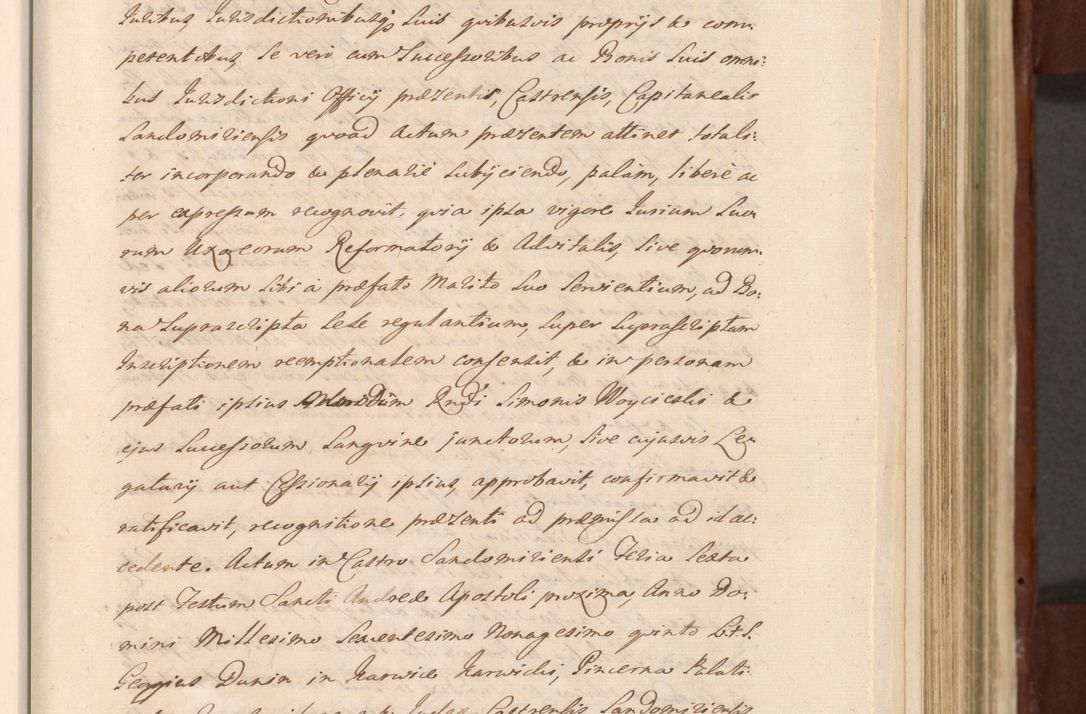 Juribus Jurisdictionibusq̃ Suis quibusvis proprijs & com:
petentibus, Se vero cum Successoribus ac Bonis Suis omni:
bus Jurisdictioni Officij præsentis, Castrensis, Capitanealis
Sandomiriensis quoad Actum præsentem attinet totali:
ter incorporando & plenarie Subijciendo, palàm, liberè ac
per expressum recognovit, quia ipsa vigore Jurium Suo
rum Uxoreorum Reformatorij & Advitalis, Sive quorum:
vis aliorum Sibi à præfato Marito Suo Servientium, ad Bo:
na Suprascripta Sese regulantium, Super Suprascriptam
Inscriptionem reemptionalem consensit, & in personam
præfati ipsius Rndi Simonis Woycicki &
ejus Successorum Sanguine junctorum, Sive cujusvis Le
gatarij aut Cessionarij ipsius, approbavit, confirmavit &
ratificavit, recognitione præsenti ad præmissa ad id ac:
cedente. Actum in Castro Sandomiriensi Feria Sexta
post Festum Sancti Andreæ Apostoli proxima, Anno Do:
mini Millesimo Seventesimo Nonagesimo quinto L.S.
Georgius Dunin in Karwice Karwicki, Pincerna Palati:
Castrensis Sandomiriensis